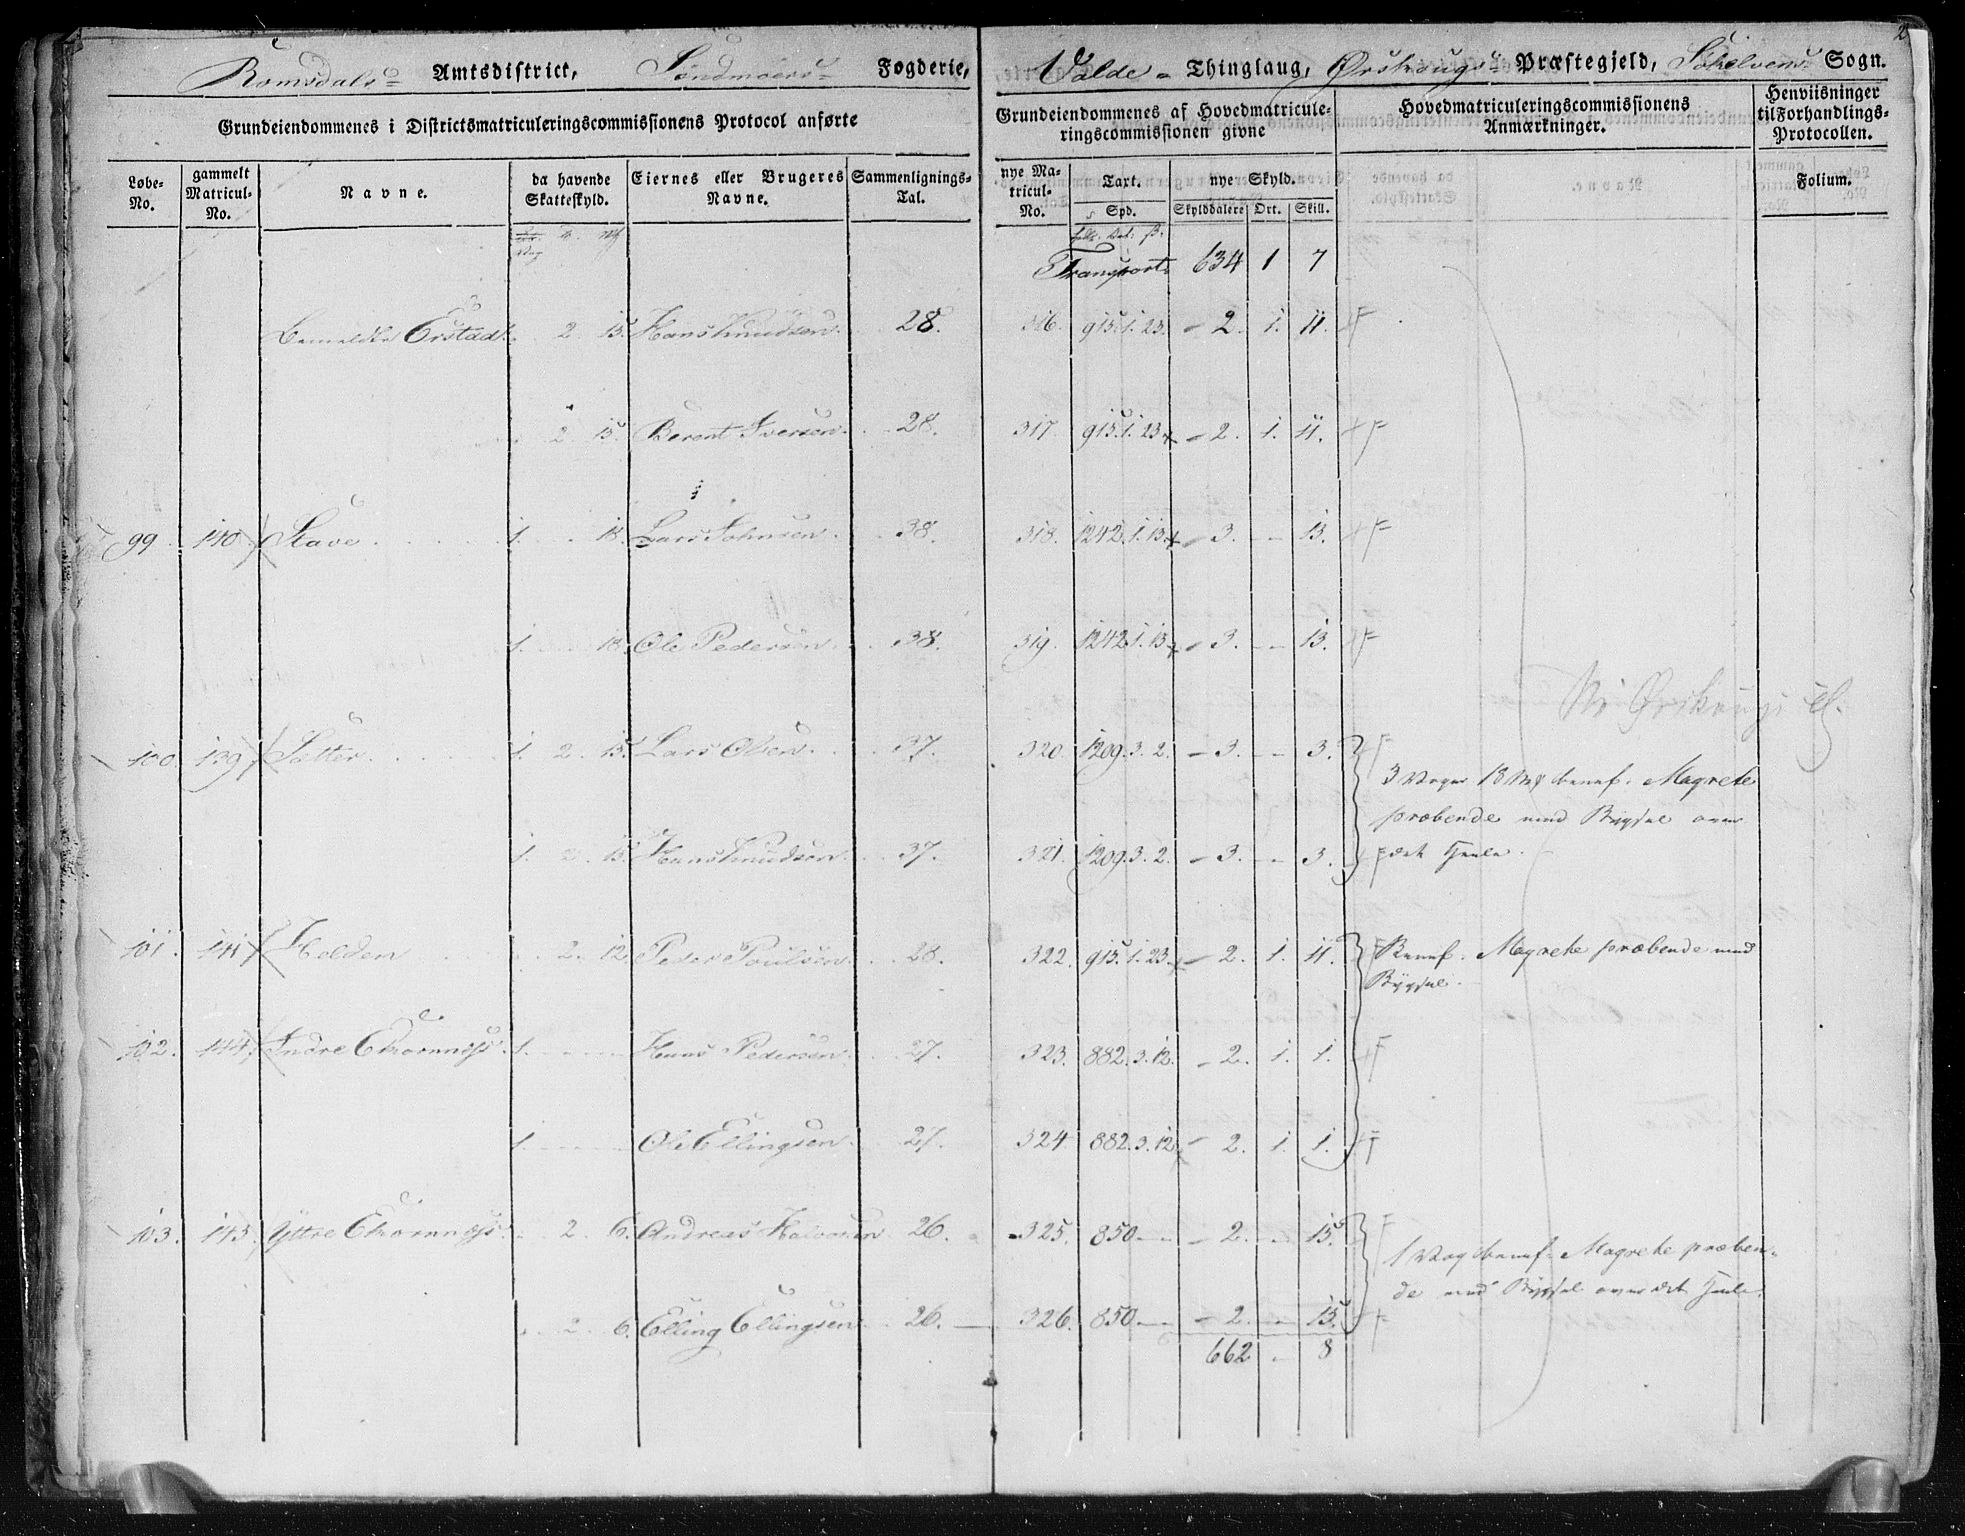 Romsdals Amtsdistrict, Söndmoers Fogderie, Volde Thinglaug, Ørskougs Præstegjeld, Sökelvens Sogn.
Grundeiendommenes i Districtsmatriculeringscommissionens Protocol anførte
Grundeiendommenes af Hovedmatriculeringscommissionen givne
Hovedmatriculeringscommissionens Anmærkninger.
Henviisninger til Forhandlings-Protocollen.
Løbe-No. gammelt Matricul-No. Navne. da havende Skatteskyld. Eiernes eller Brugeres Navne. Sammenlignings-Tal. nye Matricul-No. Taxt. Spd. nye Skyld. Skylddalere Ort. Skill. Folium.
Transport 634 1 7
Erstad 2. 15. Hans Knudsen 28. 316. 915.1.23. 2. 1. 11. F
2. 15. Berent Iversen 28. 317. 915.1.23 2. 1. 11. F
99 140 Stave 1. 18. Lars Johnsen 38. 318. 1242.1.13. 3. 13. F
1. 18. Ole Pedersen 38. 319. 1242.1.13 3. 13. F
100 139 Sætter 1. 2. 15. Lars Olsen 37. 320. 1209.3.2. 3. 3. F
3 Voger 18 Mk benef. Magrete
præbende med Bygsel over
1. 2. 15. Hans Knudsen 37. 321. 1209.3.2. 3. 3. F det Heele.
101. 141 Holden 2. 12 Peder Poulsen 28. 322. 915.1.23 2. 1. 11. F Benef. Magrete præbende med
Bygsel.
102. 144 Indre Ekornnæss 1. Hans Pedersen 27. 323. 882.3.12. 2. 1. 1. F
1. Ole Ellingsen 27. 324 882.3.12 2. 1. 1. F
103. 143. Yttre Ekornnæss 2. 6. Andreas Halvorsen 26. 325. 850 2. 15. F
1 Vog benef. Magrete præben-
de med Bygsel over det Heele.
2. 6. Elling Ellingsen 26. 326. 850 2. 15. F
662 8